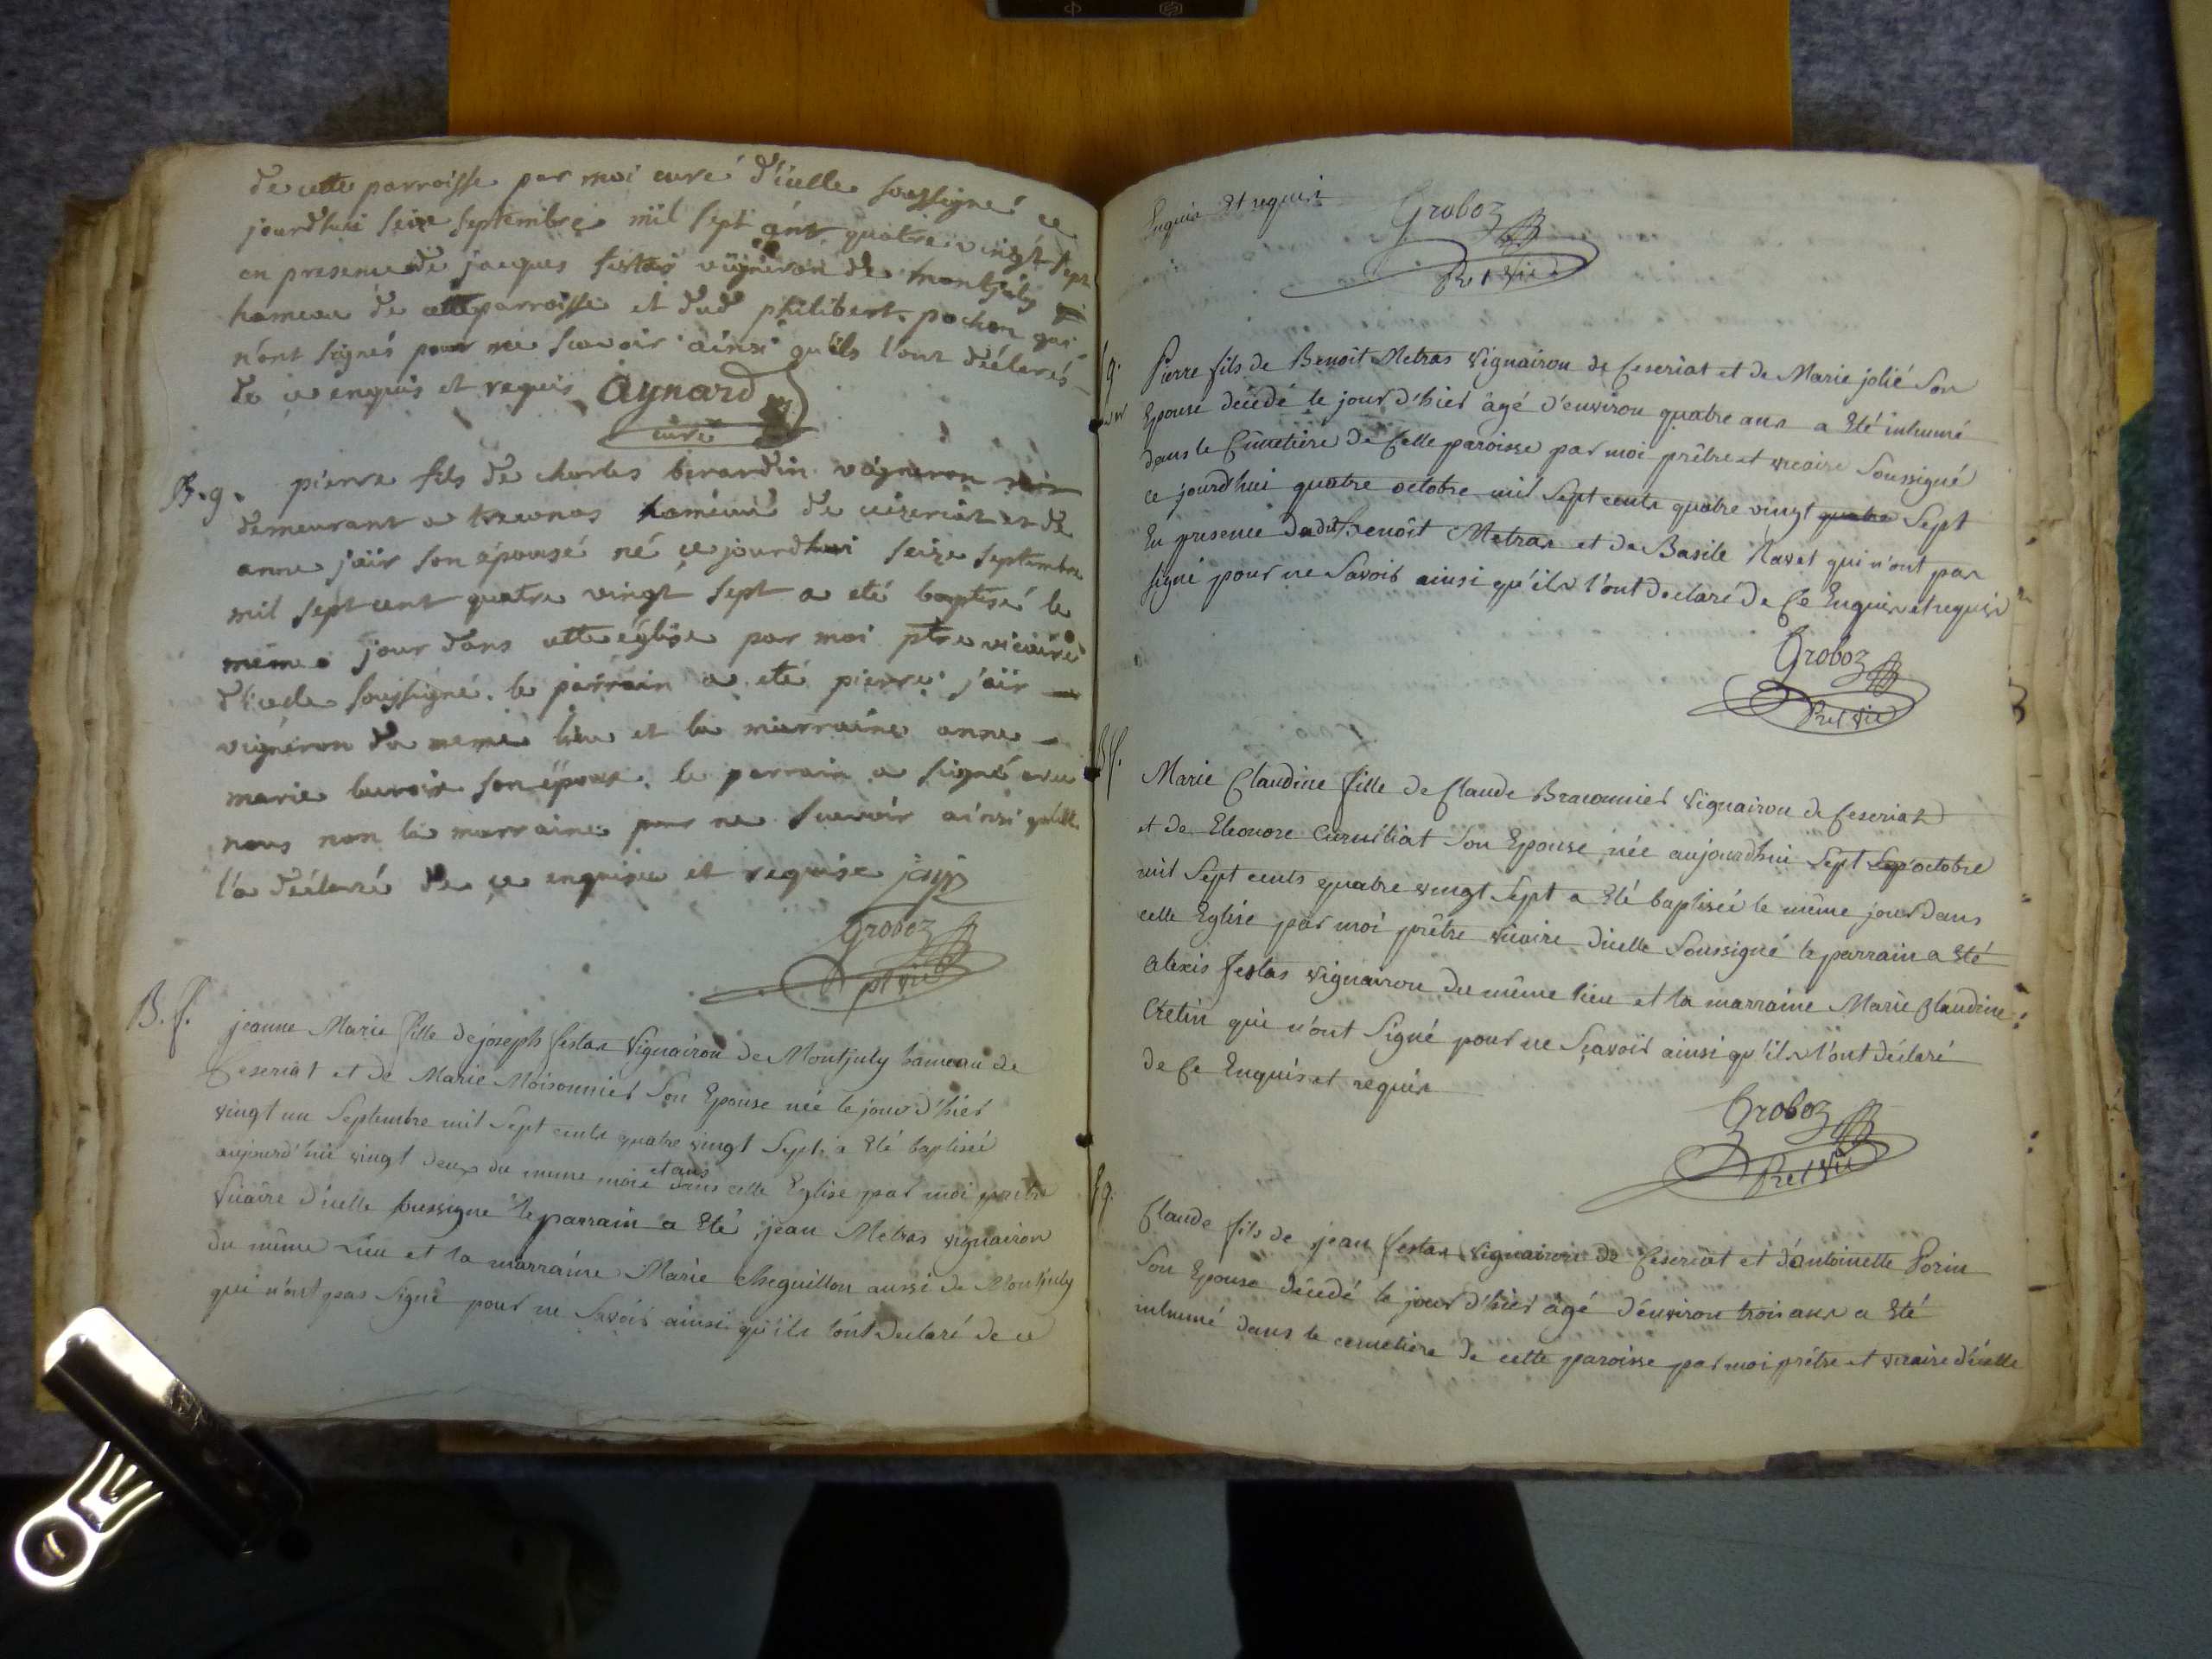 de cette parroisse par moi curé d'icelle soussigné ce
jourdhui seize septembre mil sept cent quatre vingt sept
en presence de jacques festas vigneron de montjuly
hameau de cette parroisse et dud philibert pochon qui
n'ont signés pour ne scavoir ainsi qu'ils l'ont déclarés
de ce enquis et requis Aynard
curé
B. g. pierre fils de charles berardin vigneron
demeurant a hameau de ceizeriat et de
anne jaïr son épouse né ce jourdhui seize septembre
mil sept cent quatre vingt sept a eté baptisé le
même jour dans cette église par moi ptre vicaire
d'icelle soussigné. le parrain a eté pierre jaïr
vigneron du meme lieu et la marraine anne
marie son épouse. le parrain a signé avec
nous non la marraine pour ne scavoir ainsi qu'elle
l'a déclaré de ce enquise et requise
Groboz
pt vic
B. f. jeanne Marie fille de joseph festas Vignairon de Montjuly hameau de
Ceseriat et de Marie Moisonnier Son Epouse née le jour d'hier
vingt un Septembre mil Sept cents quatre vingt Sept a Eté baptisée
aujourd'hui vingt deux du même mois et ans dans cette Eglise par moi prêtre
Vicaire d'icelle soussigné le parrain a Eté jean Metras vignairon
du même Lieu et la marraine Marie cheguillon aussi de Montjuly
qui n'ont pas Signé pour ne Savoir ainsi qu'ils l'ont declaré de ce
Enquis Et requis
Groboz
Pret Vic
Pierre fils de Benoît Metras Vignairon de Ceseriat et de Marie jolié Son
Epouse décédé le jour d'hier âgé d'environ quatre ans a Eté inhumé
dans le Cimetière de Cette paroisse par moi prêtre et vicaire Soussigné
ce jourdhui quatre octobre mil Sept cents quatre vingt quatre Sept
En presence dudit Benoît Metras et de Basile Ravet qui n'ont pas
signé pour ne Savoir ainsi qu'ils l'ont declaré de Ce Enquis et requis
Groboz
Pret Vic
B f. Marie Claudine fille de Claude Braconnier Vignairon de Ceseriat
et de Eleonore Curniliat Son Epouse née aujourdhui Sept Sep octobre
mil Sept cents quatre vingt Sept a Eté baptisée le même jour dans
cette Eglise par moi prêtre vicaire d'icelle Soussigné le parrain a Eté
Alexis festas vignairon du même lieu et la marraine Marie Claudine
Crétin qui n'ont Signé pour ne Sçavoir ainsi qu'ils l'ont declaré
de Ce Enquis et requis
Groboz
Pret Vic
Claude fils de jean festas Vignairon de Ceseriat et d'antoinette
Son Epouse décédé le jour d'hier âgé d'environ trois ans a Eté
inhumé dans le cemetière de cette paroisse par moi prêtre et vicaire d'icelle